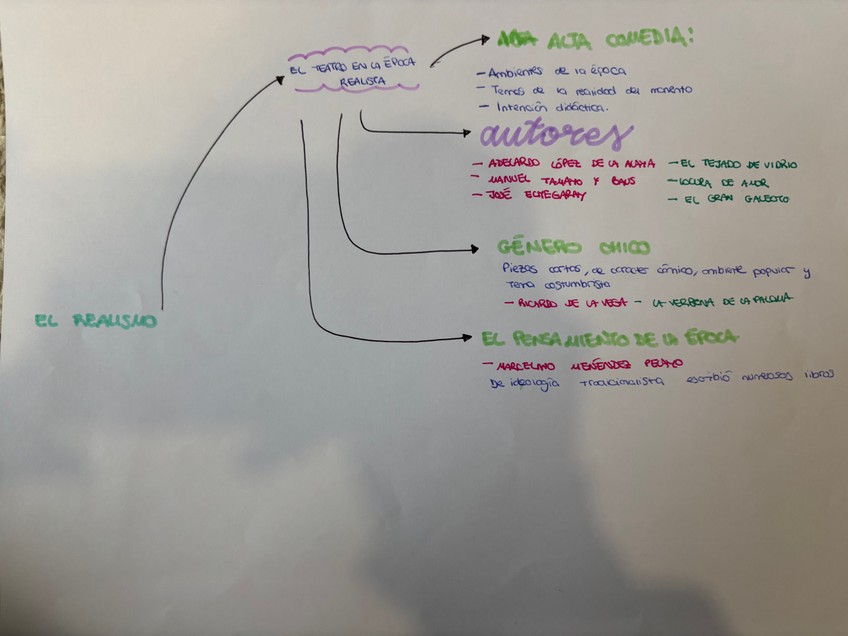 EL TEATRO EN LA ÉPOCA
REALISTA
ALTA COMEDIA:
- Ambientes de la época
- Temas de la realidad del momento
- Intención didáctica.
autores
- ADELARDO LÓPEZ DE LA AYALA - EL TEJADO DE VIDRIO
- MANUEL TAMAYO Y BAUS - LOCURA DE AMOR
- JOSÉ ECHEGARAY - EL GRAN GALEOTO
GÉNERO CHICO
Piezas cortas, de carácter cómico, ambiente popular y
tema costumbrista
- RICARDO DE LA VEGA - LA VERBENA DE LA PALOMA
EL REALISMO
EL PENSAMIENTO DE LA ÉPOCA
- MARCELINO MENÉNDEZ PELAYO
De ideología tradicionalista escribió numerosos libros